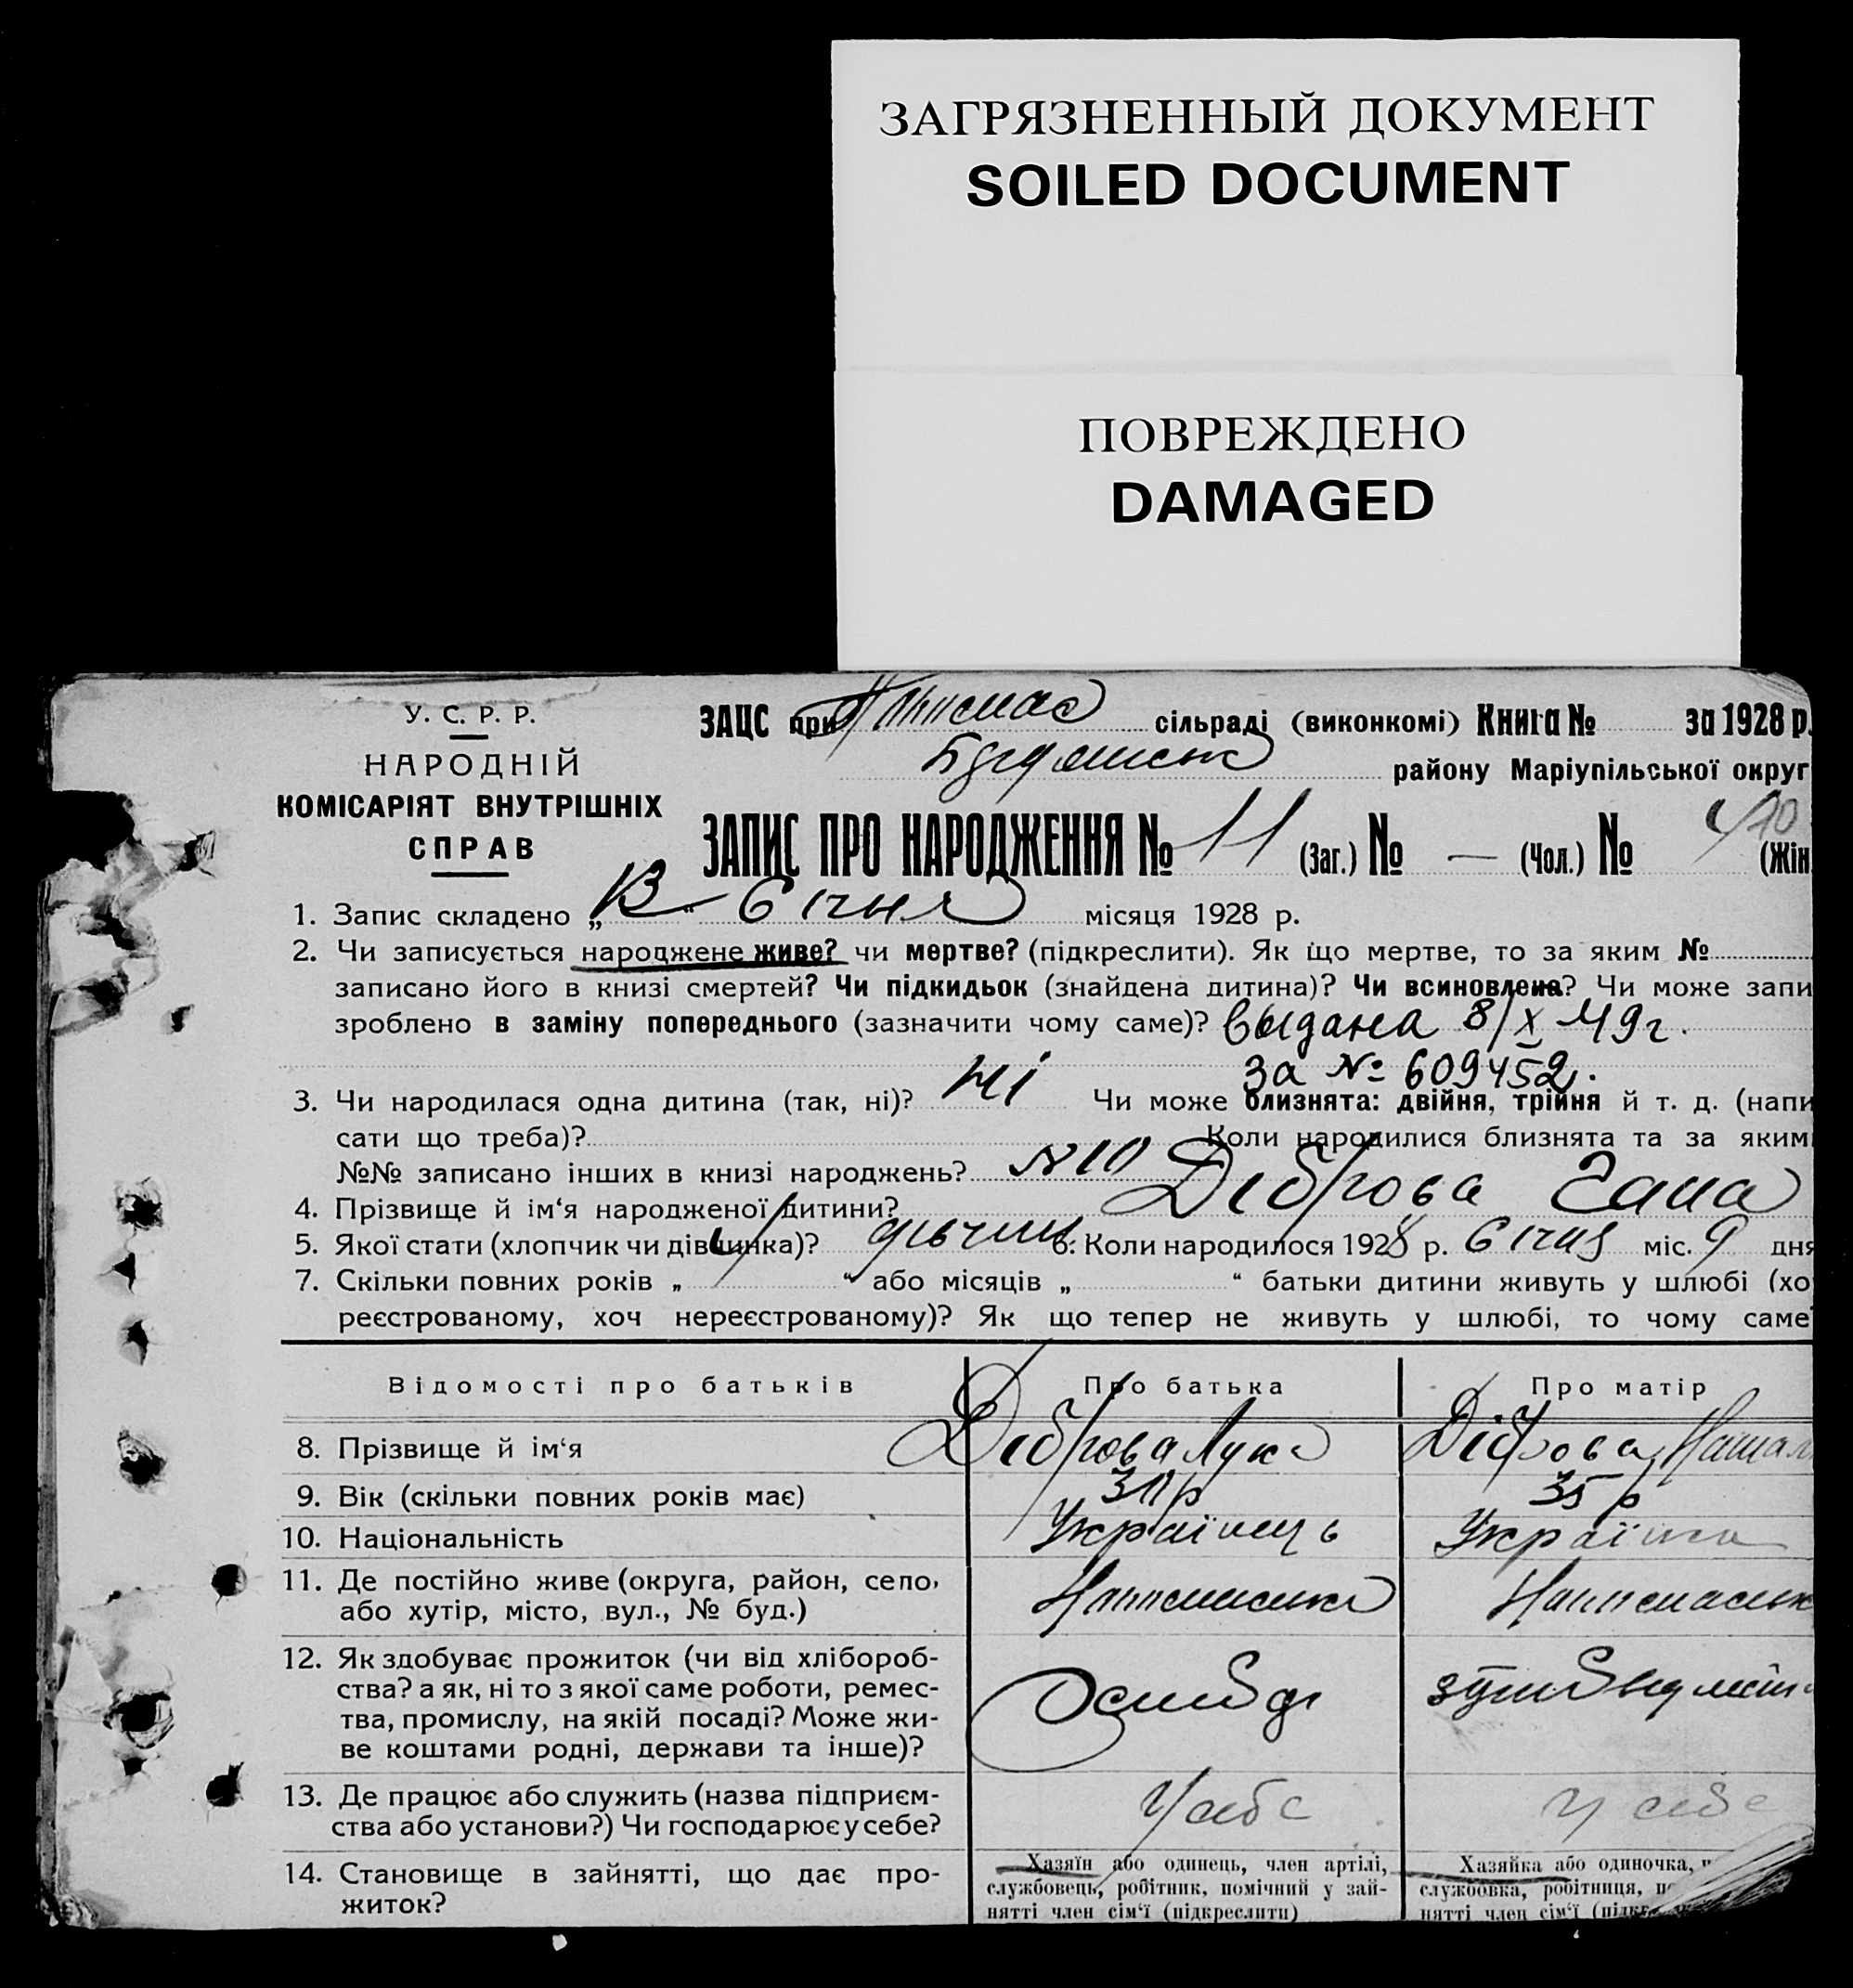 ЗАГРЯЗНЕННЫЙ ДОКУМЕНТ
SOILED DOCUMENT
ПОВРЕЖДЕНО
DAMAGED
У. С. Р. Р.
НАРОДНІЙ
КОМІСАРІЯТ ВНУТРІШНІХ
СПРАВ
ЗАЦС при сільраді (виконкомі) Книга № за 1928 р.
району Маріупільської округ
ЗАПИС ПРО НАРОДЖЕННЯ № 11 (Заг.) № — (Чол.) № (Жін.
1. Запис складено „13“ Січня місяця 1928 р.
2. Чи записується народжене живе? чи мертве? (підкреслити). Як що мертве, то за яким №
записано його в книзі смертей? Чи підкидьок (знайдена дитина)? Чи всиновлена? Чи може запи
зроблено в заміну попереднього (зазначити чому саме)? выдана 8/X 49г.
за № 609452.
3. Чи народилася одна дитина (так, ні)? Ні Чи може близнята: двійня, трійня й т. д. (напи
сати що треба)? Коли народилися близнята та за яким
№№ записано інших в книзі народжень? №10
4. Прізвище й ім‘я народженої дитини? Діброва Гана
5. Якої стати (хлопчик чи дівчинка)? 6. Коли народилося 1928 р. Січня міс. 9 дня
7. Скільки повних років „ “ або місяців „ “ батьки дитини живуть у шлюбі (хо
реєстрованому, хоч нереєстрованому)? Як що тепер не живуть у шлюбі, то чому саме
Відомості про батьків Про батька Про матір
8. Прізвище й ім‘я Діброва Лука Діброва Натал
9. Вік (скільки повних років має) 35 р
10. Національність Українець Українка
11. Де постійно живе (округа, район, село,
або хутір, місто, вул., № буд.)
12. Як здобуває прожиток (чи від хлібороб-
ства? а як, ні то з якої саме роботи, ремес-
тва, промислу, на якій посаді? Може жи-
ве коштами родні, держави та інше)?
13. Де працює або служить (назва підприєм-
ства або установи?) Чи господарює у себе? У себе У себе
14. Становище в зайнятті, що дає про-
житок?
Хазяїн або одинець, член артілі,
службовець, робітник, помічний у зай-
нятті член сім‘ї (підкреслити)
Хазяйка або одиночка,
службовка, робітниця,
нятті член сім‘ї